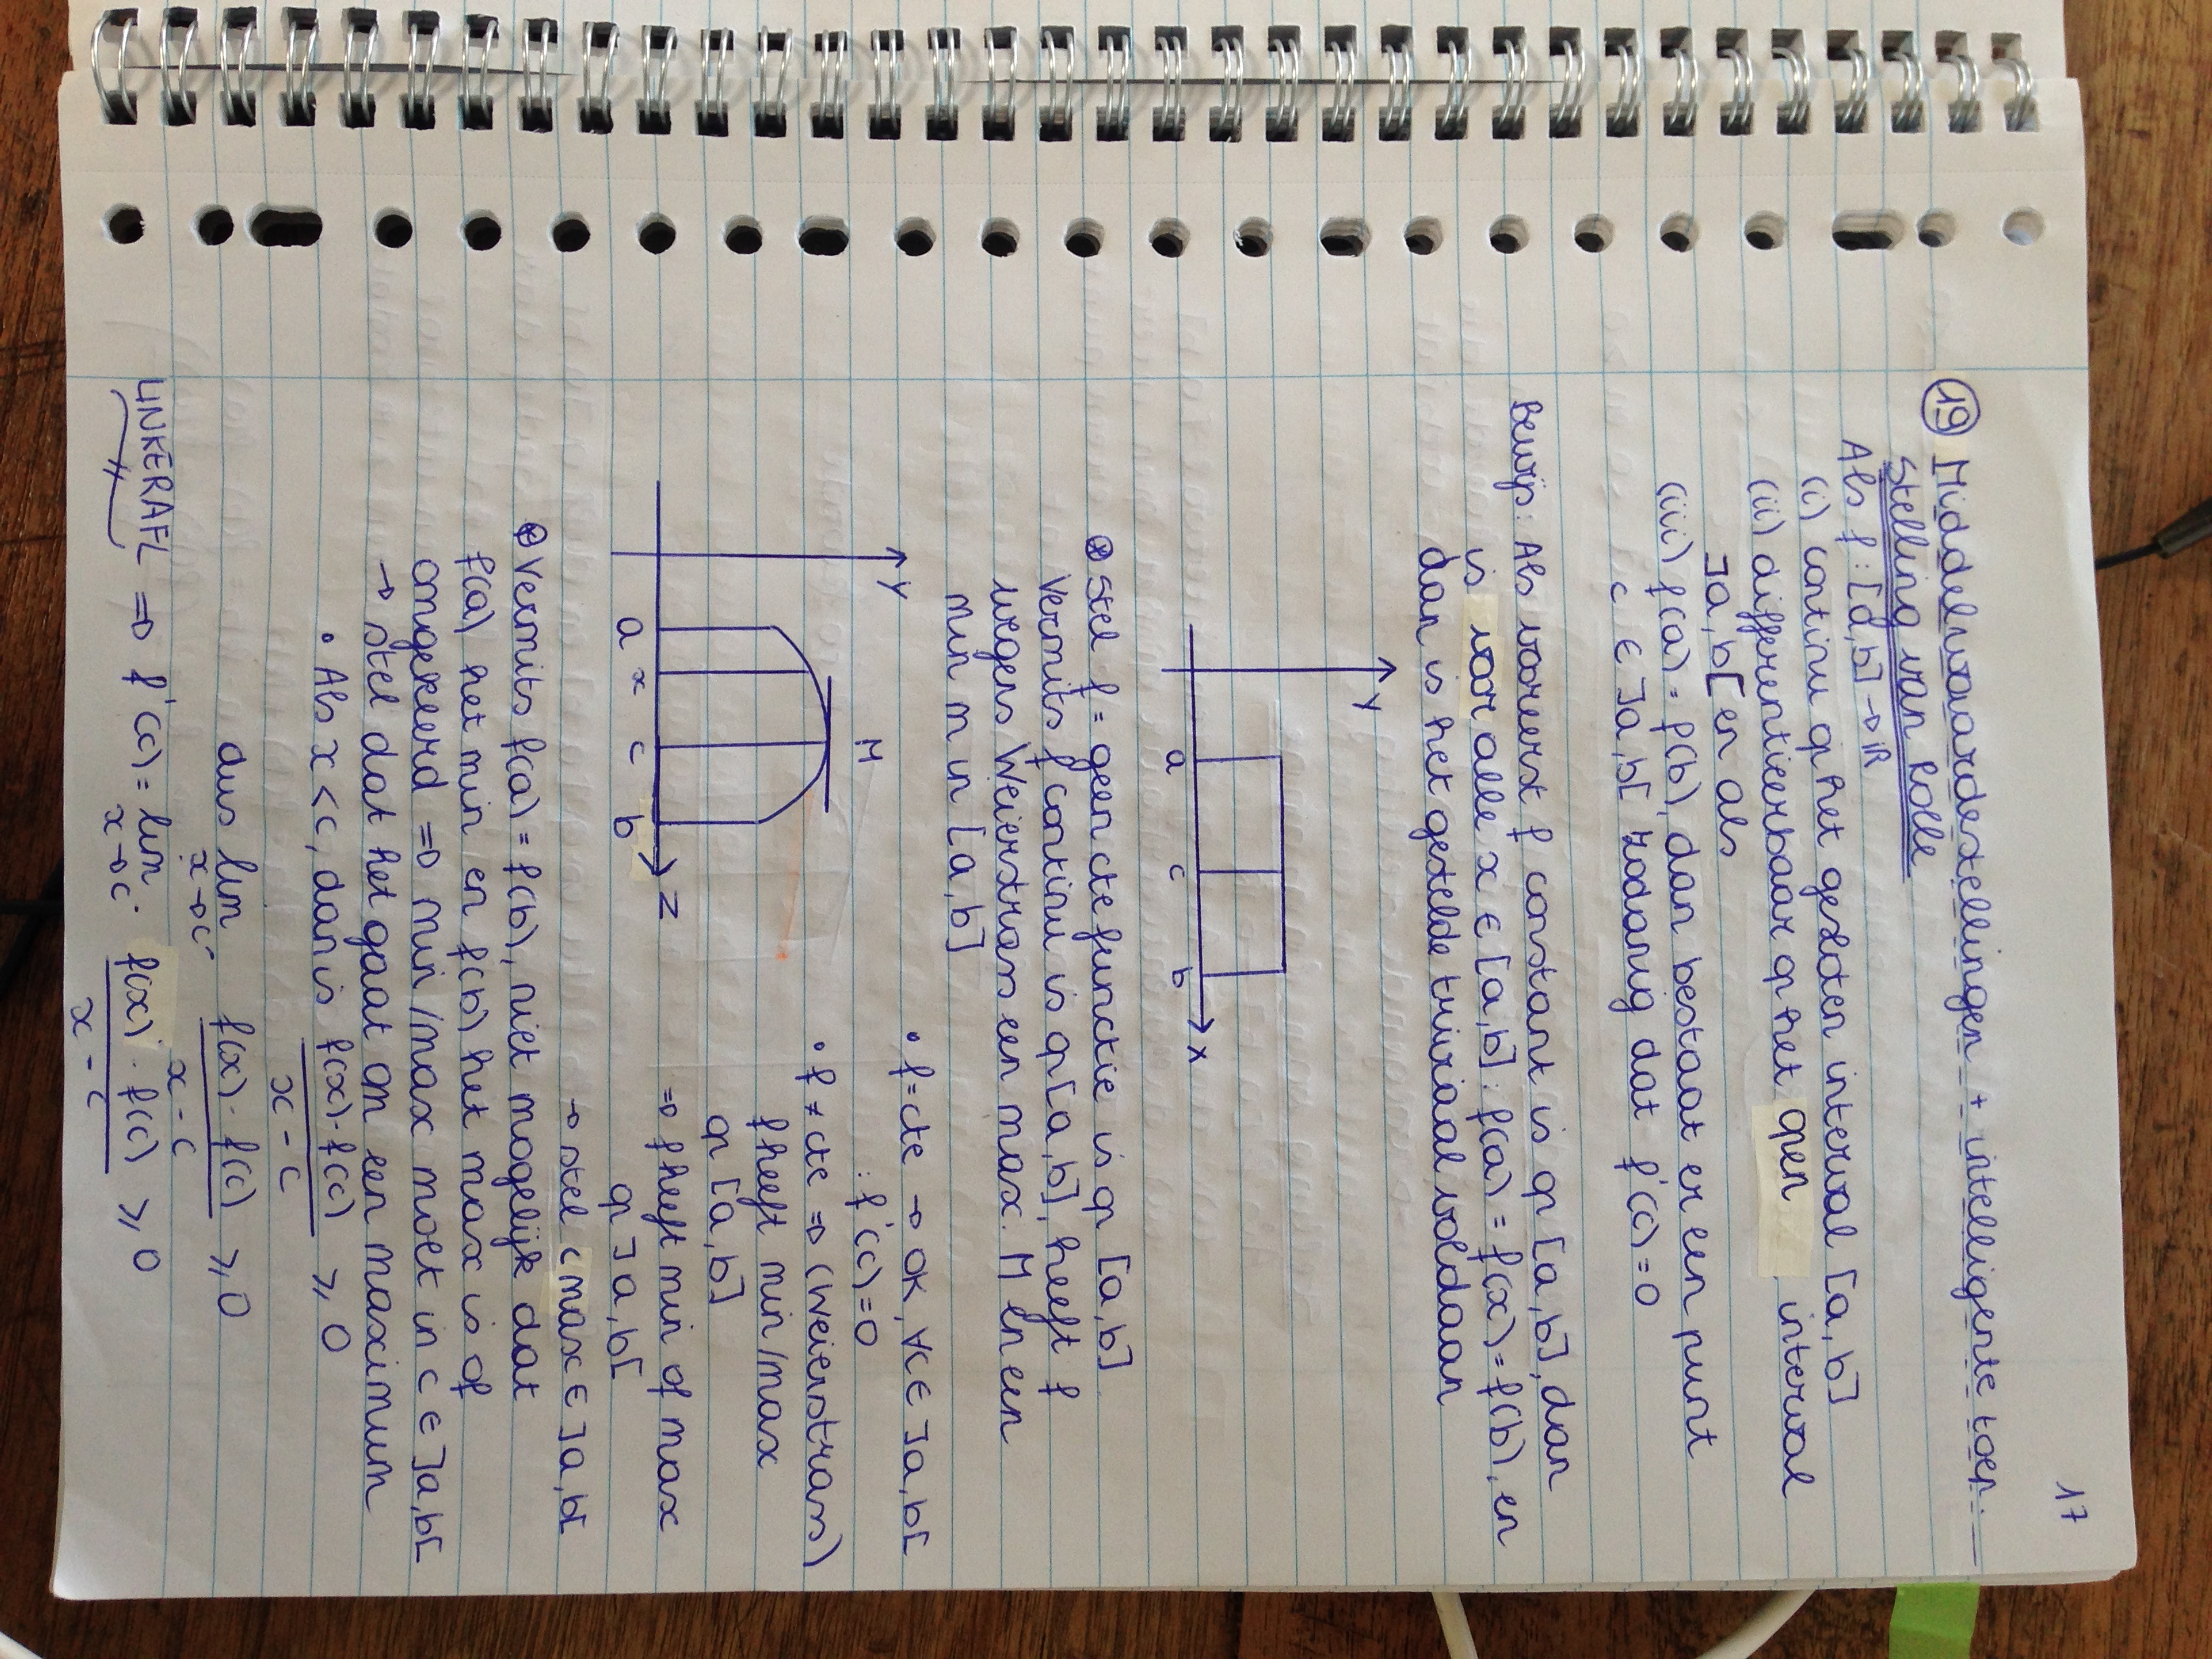 17
19 Middelwaardestellingen + intelligente toep.
Stelling van Rolle
Als f : [a,b] → ℝ
(i) continu op het gesloten interval [a,b]
(ii) differentieerbaar op het open interval
]a,b[ en als
(iii) f(a) = f(b), dan bestaat er een punt
c ∈ ]a,b[ zodanig dat f'(c) = 0
Bewijs: Als vooreerst f constant is op [a,b], dan
is voor alle x ∈ [a,b] : f(a) = f(x) = f(b), en
dan is het gestelde triviaal voldaan
y
x
a c b
⊛ Stel f = geen cte functie is op [a,b]
Vermits f continu is op [a,b], heeft f
wegens Weierstrass een max. M en een
min m in [a,b]
y
M
z
a x c b
• f = cte → OK, ∀c ∈ ]a,b[
: f'(c) = 0
• f ≠ cte ⇒ (Weierstrass)
f heeft min/max
op [a,b]
⇒ f heeft min of max
op ]a,b[
→ stel c max ∈ ]a,b[
⊛ Vermits f(a) = f(b), niet mogelijk dat
f(a) het min en f(b) het max is of
omgekeerd ⇒ min/max moet in c ∈ ]a,b[
→ stel dat het gaat om een maximum
• Als x < c, dan is f(x) - f(c) / x - c ⩾ 0
dus lim x→c⁻ f(x) - f(c) / x - c ⩾ 0
LINKERAFL ⇒ f'(c) = lim x→c⁻ f(x) - f(c) / x - c ⩾ 0